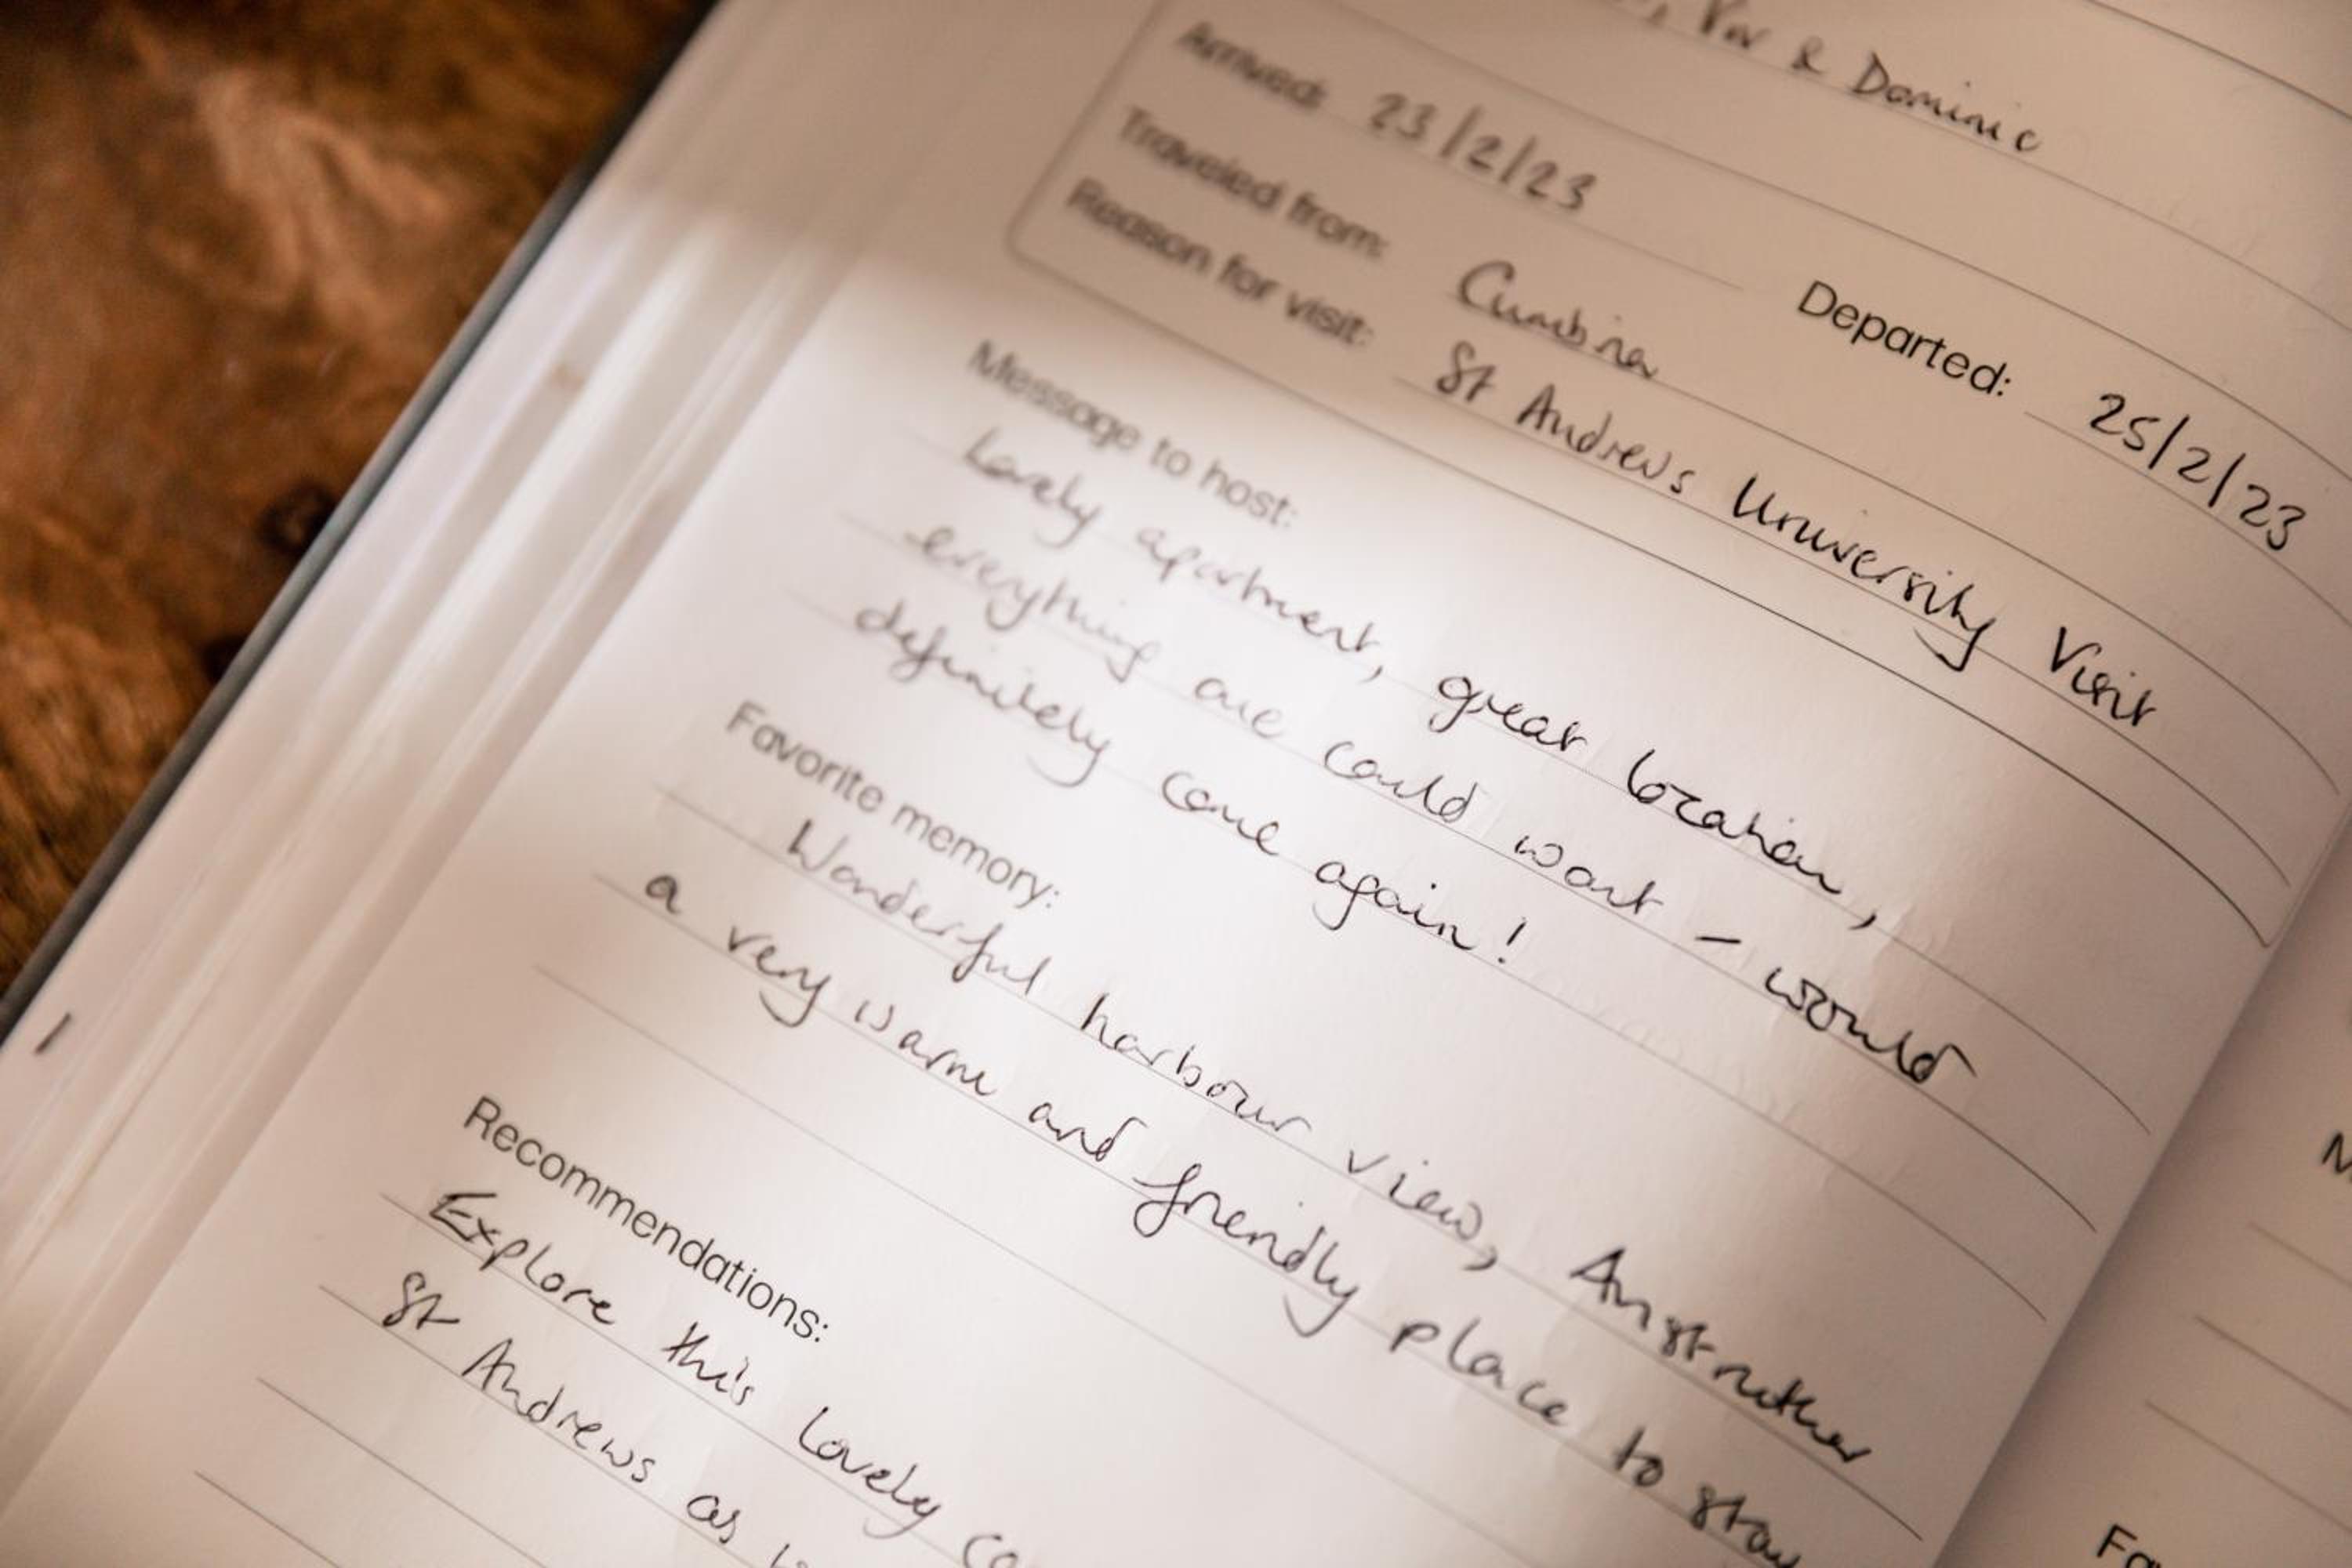 & Dominic
Arrived: 23/2/23 Departed: 25/2/23
Traveled from: Cumbria
Reason for visit: St Andrews University Visit
Message to host:
Lovely apartment, great location,
everything one could want – would
definitely come again!
Favorite memory:
Wonderful harbour view, Anstruther
a very warm and friendly place to stay
Recommendations:
Explore this lovely
St Andrews as